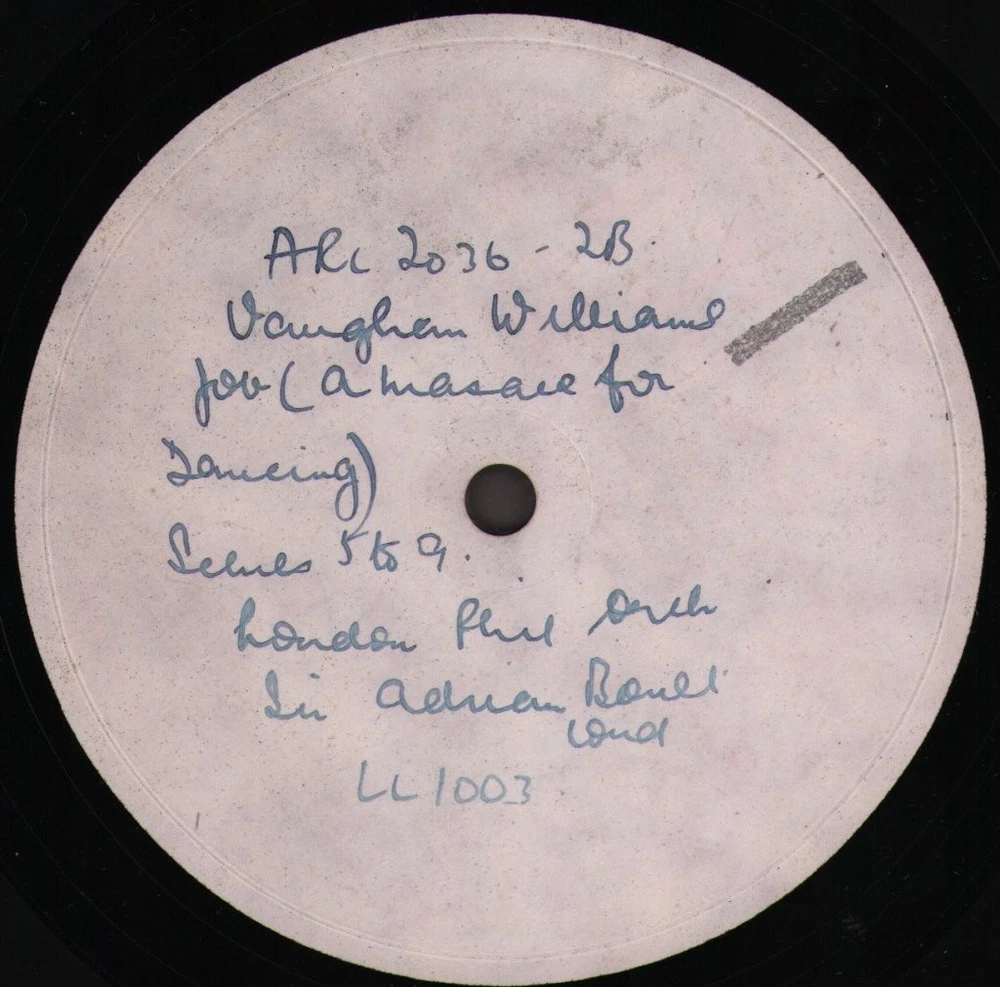 ARL 2036 - 2B.
Vaughan Williams
Job (A Masque for
Dancing)
Scenes 5 to 9.
London Phil Orch
Sir Adrian Boult
cond
LL 1003